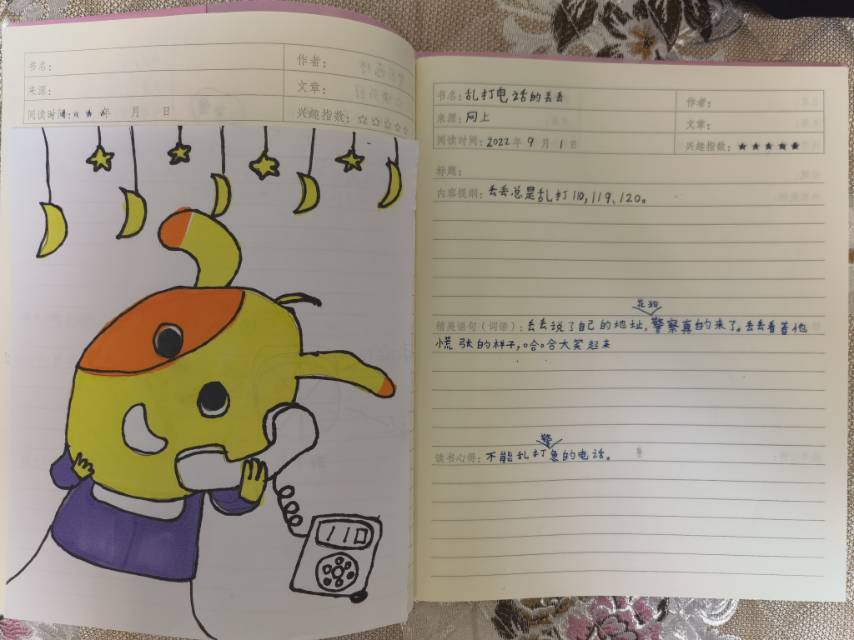 书名：
作者：
来源：
文章：
阅读时间： 年 月 日
兴趣指数：☆☆☆☆☆
110
书名：乱打电话的丢丢
作者：
来源：网上
文章：
阅读时间：2022年9月1日
兴趣指数：★★★★★
标题：
内容提纲：丢丢总是乱打110，119、120。
精美语句（词语）：丢丢说了自己的地址，警察真的来了。丢丢看着他
慌张的样子，哈哈大笑起来
警
读书心得：不能乱打急的电话。